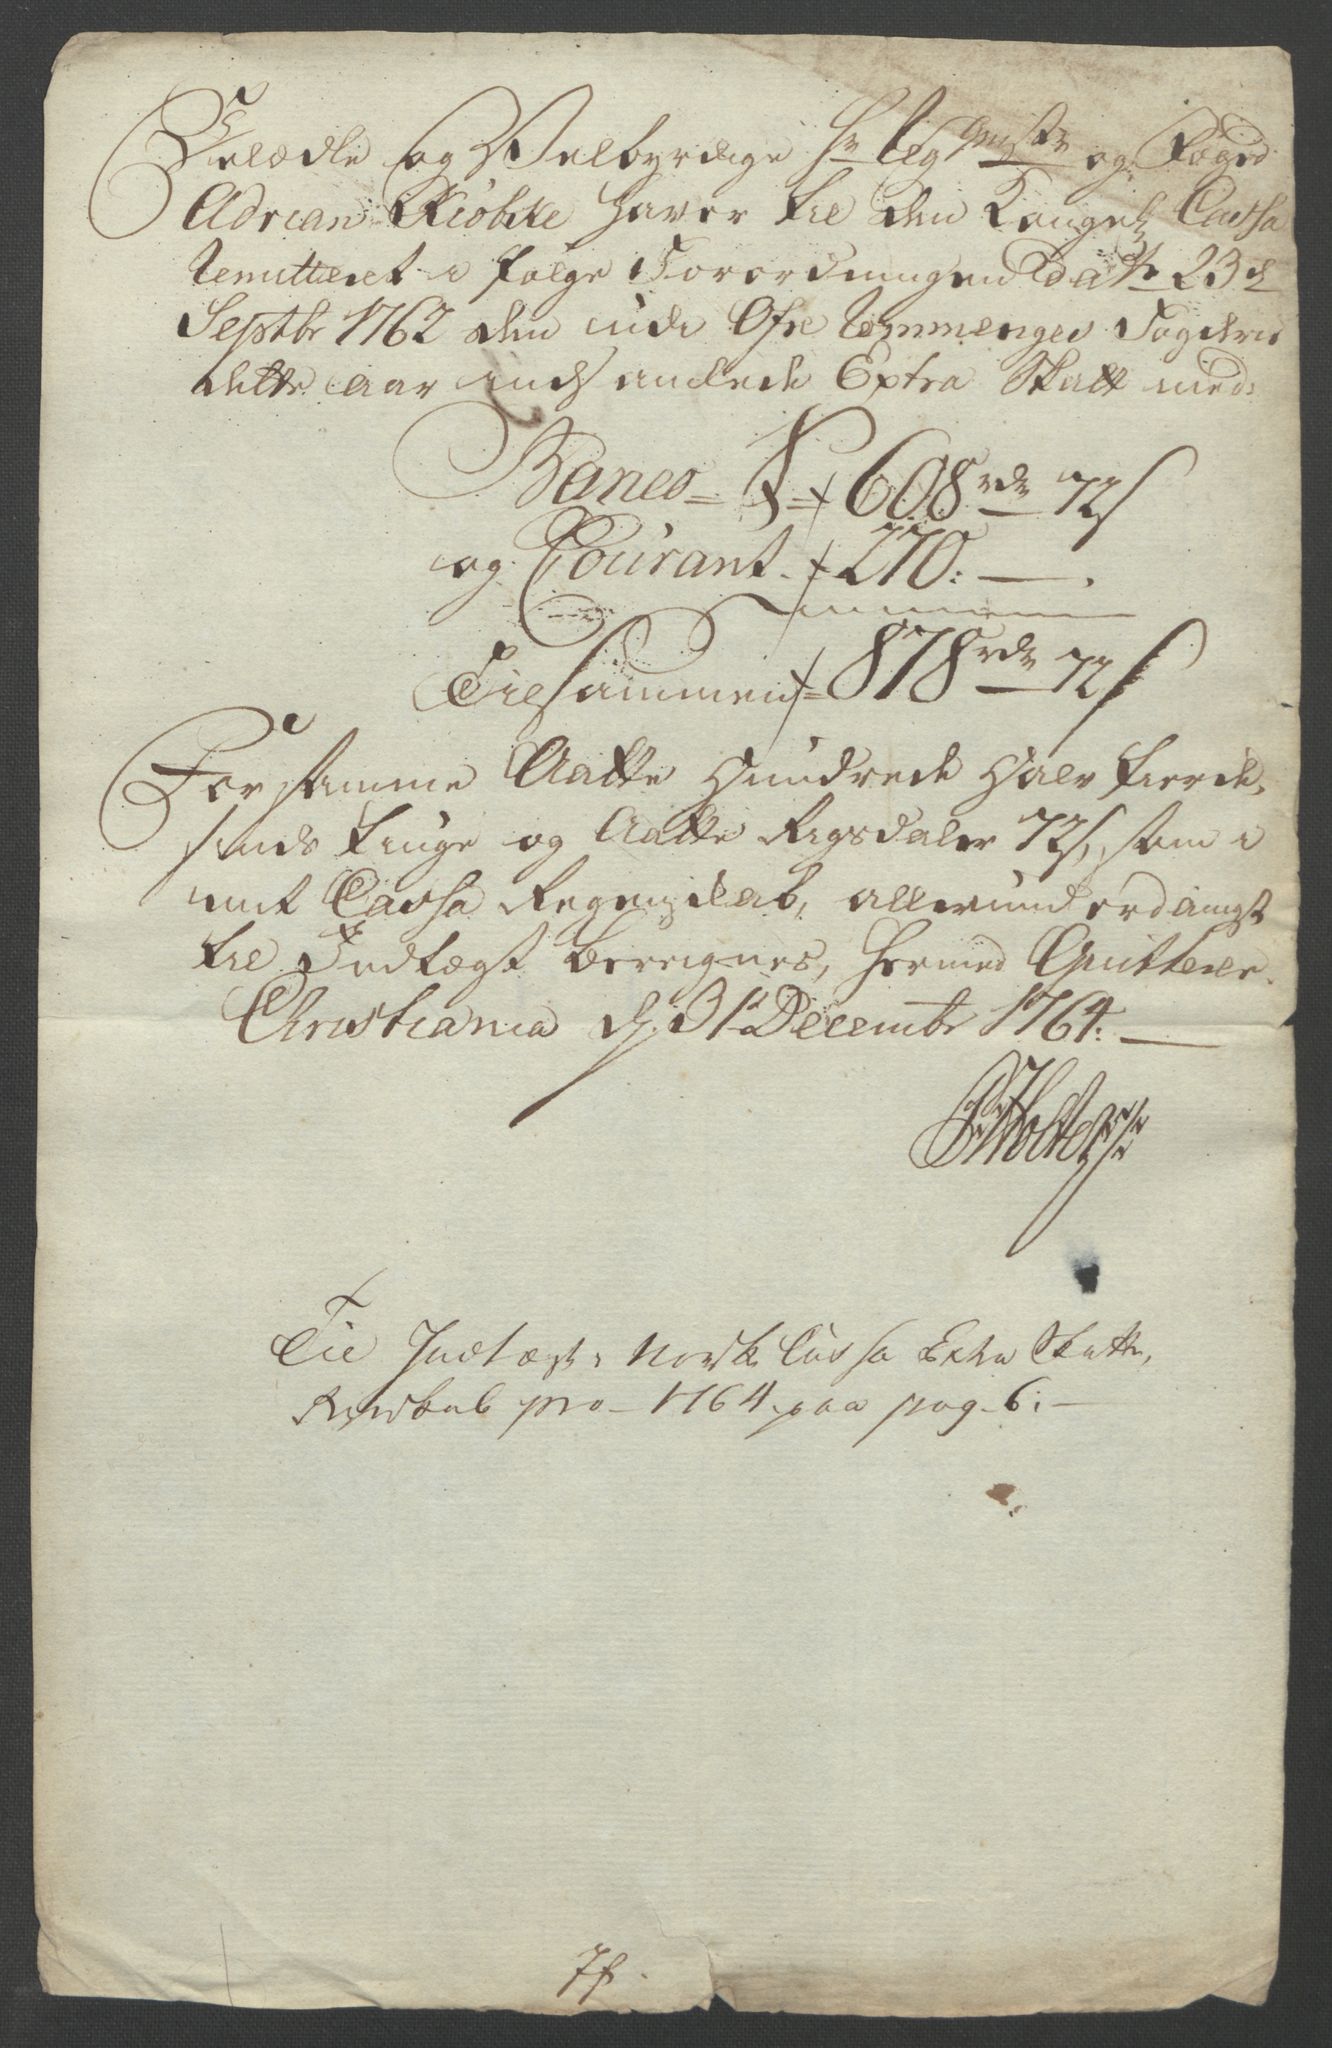 Velædle og Velbyrdige Hr og Foged
Adrian Kiøbke haver til den Kongel Cassa
Remitteret i følge Forordningen dat 23d
Septbr 1762 den udi Øfre Rommeriges Fogderie
dette aar indsamlede Extra Skatt med:
Banco = 608 rdr 72 s
og Courant 270: —
Tilsammen 878 rdr 72 s
For samme Aatte Hundrede Halv fierde,
sinds tiuge og Aatte Rigsdaler 72 s, som i
mit Cassa Regenskab, allerunderdanigst
til Indtægt bereignes, hermed Quitteres.
Christiania d. 31 Decembr 1764. —
Holter
Til Indtægt i Norsk Cassa Extra Skatte,
Regnskab pro 1764 paa pag. 6: —